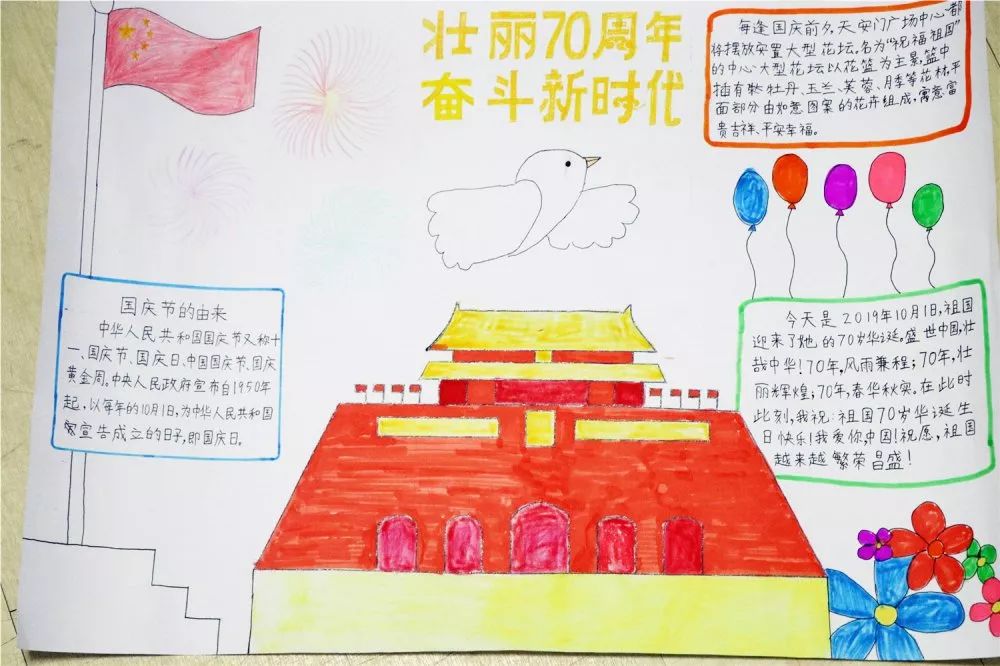 壮丽70周年
奋斗新时代
每逢国庆前夕,天安门广场中心都
将摆放安置大型花坛。名为“祝福祖国”
的中心大型花坛以花篮为主景,篮中
插有牡丹、玉兰、芙蓉、月季等花材,平
面部分由如意图案的花卉组成,寓意富
贵吉祥、平安幸福。
国庆节的由来
中华人民共和国国庆节又称十
一、国庆节、国庆日、中国国庆节、国庆
黄金周。中央人民政府宣布自1950年
起,以每年的10月1日,为中华人民共和国
宣告成立的日子,即国庆日。
今天是2019年10月1日,祖国
迎来了她的70岁华诞。盛世中国,壮
哉中华!70年,风雨兼程;70年,壮
丽辉煌;70年,春华秋实。在此时
此刻,我祝:祖国70岁华诞生
日快乐!我爱你,中国!祝愿,祖国
越来越繁荣昌盛!